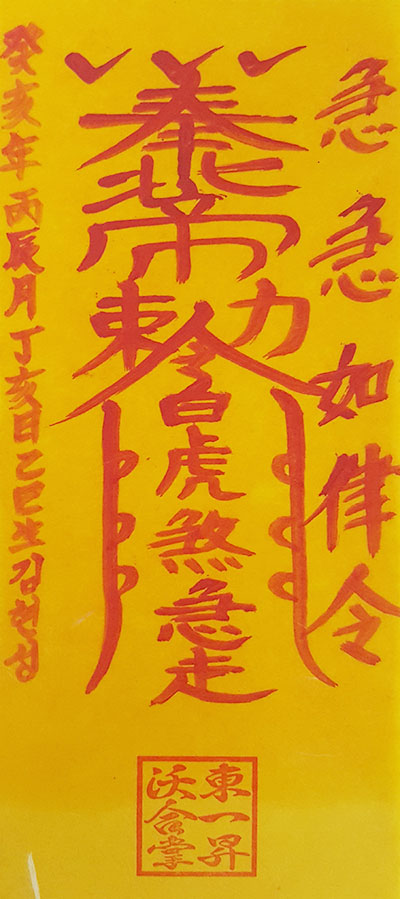 急急如律令
奉
北帝
勅令
白虎煞急走
癸亥年丙辰月丁亥日乙巳生김현성
東一昇
沃合堂